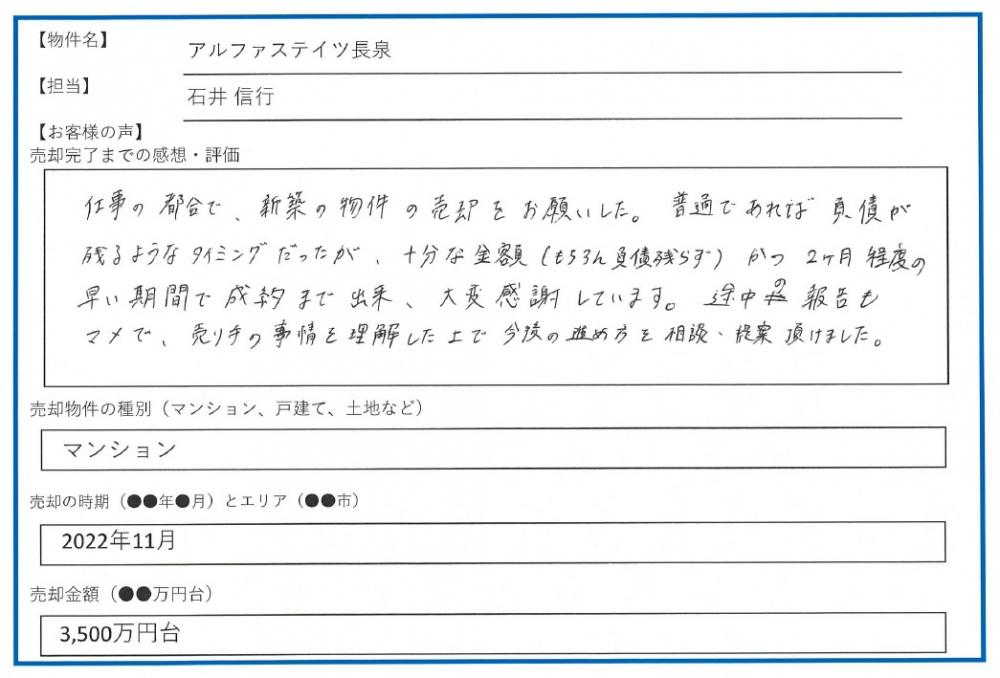 【物件名】
アルファステイツ長泉
【担当】
石井 信行
【お客様の声】
売却完了までの感想・評価
仕事の都合で、新築の物件の売却をお願いした。普通であれば負債が
残るようなタイミングだったが、十分な金額(もちろん負債残らず)かつ2ヶ月程度の
早い期間で成約まで出来、大変感謝しています。途中の報告も
マメで、売り手の事情を理解した上で今後の進め方を相談・提案頂けました。
売却物件の種別（マンション、戸建て、土地など）
マンション
売却の時期（●●年●月）とエリア（●●市）
2022年11月
売却金額（●●万円台）
3,500万円台